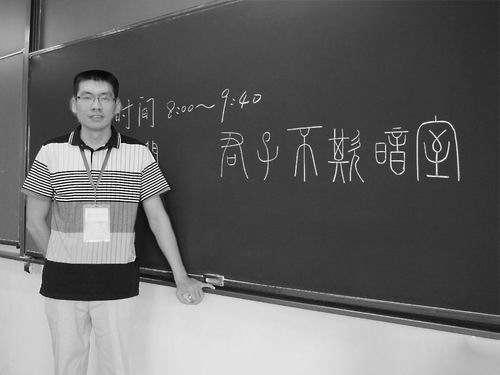 时间 8:00～9:40
君子不欺暗室